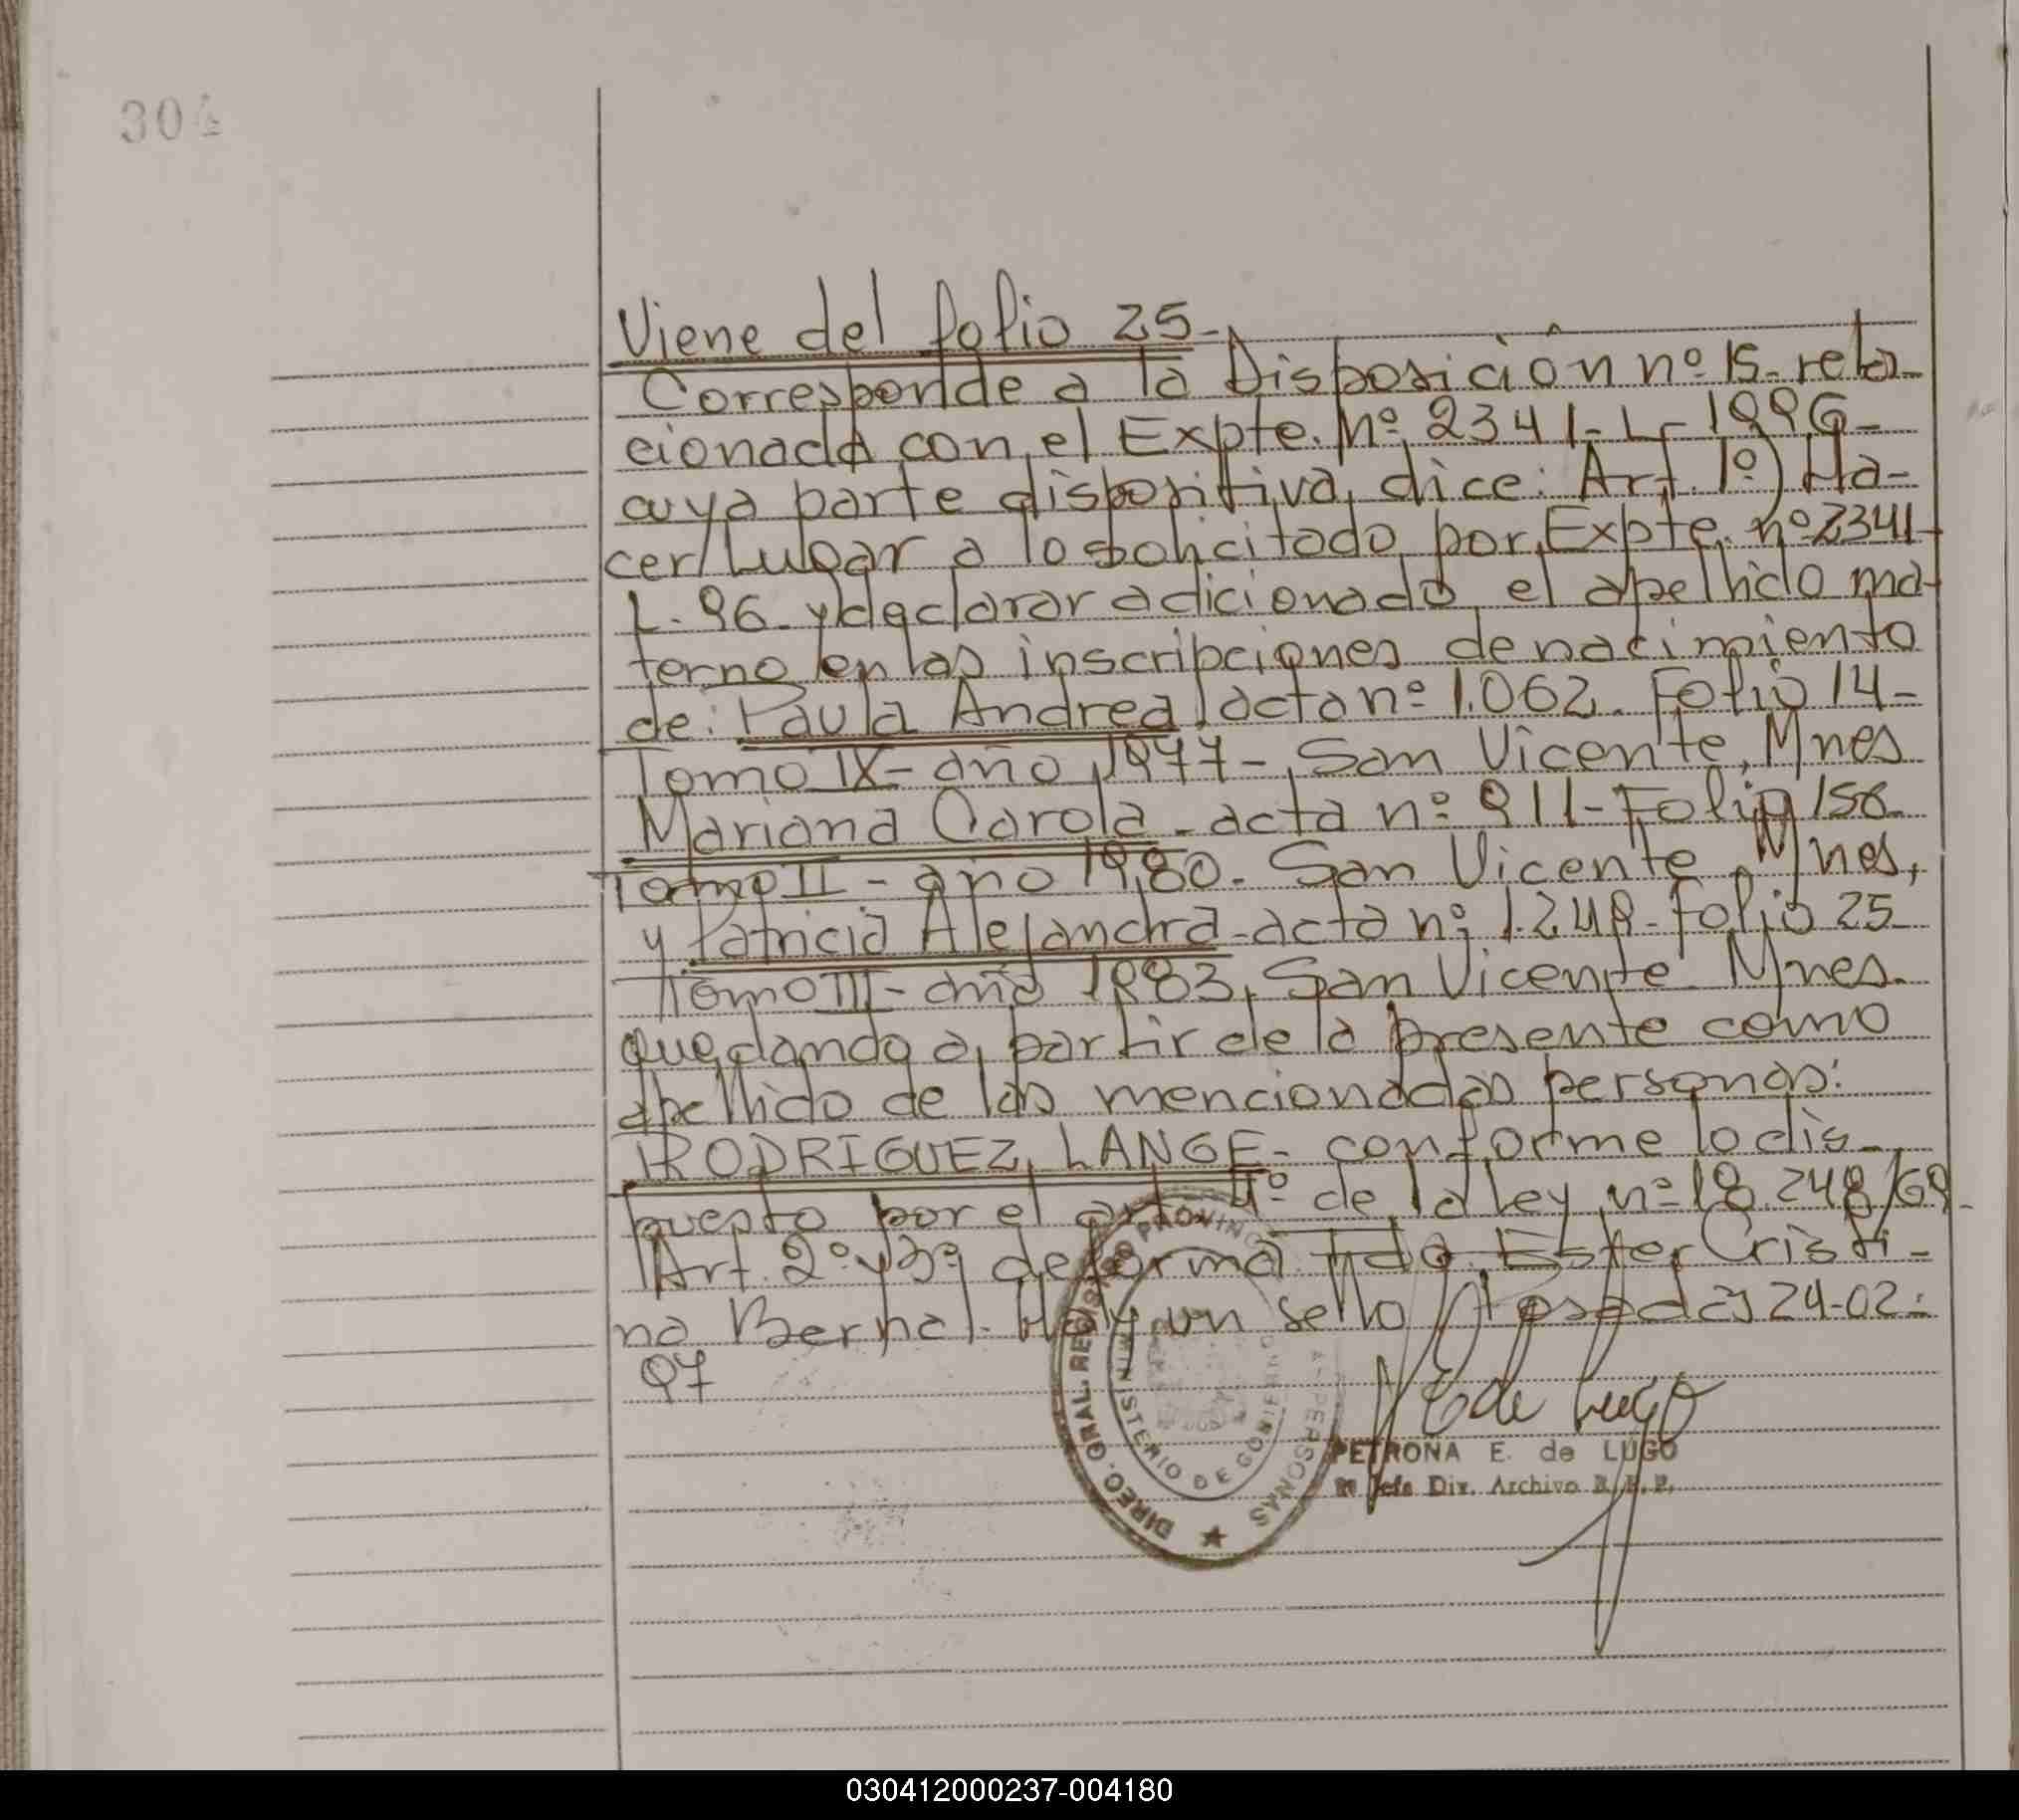 304
Viene del folio 25-
Corresponde a la Disposición nº 15- rela-
cionada con el Expte. Nº 2341-L-1996-
cuya parte dispositiva, dice: Art. 1º) Ha-
cer Lugar a lo solicitado por Expte. nº 2341-
L-96- y declarar adicionado, el apellido ma-
terno en las inscripciones de nacimiento
de: Paula Andrea acta nº 1.062. Folio 14-
Tomo IX- año 1977-, San Vicente, Mnes
Mariana Carola- acta nº 911- Folio 156-
Tomo II- año 1980- San Vicente, Mnes,
y Patricia Alejandra- acta nº 1.249- Folio 25-
Tomo III- año 1983, San Vicente Mnes.
quedando a partir de la presente como
apellido de las mencionadas personas:
RODRIGUEZ LANGE- conforme lo dis-
puesto por el art. 4º de la ley nº 18.248/69-
Art. 2º y 3º de forma Fdo Ester Cristi-
na Bernal. Hay un sello Posadas 24-02-
97
E de Lugo
PETRONA E. de LUGO
Jefe Div. Archivo R. P. P.
DIREC. GRAL. REGISTRO PROVINC PERSONAS
MINISTERIO DE GOBIERNO
030412000237-004180